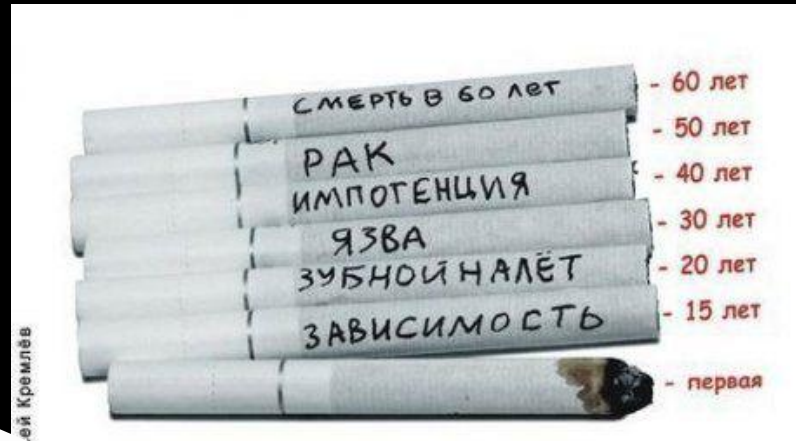 СМЕРТЬ В 60 ЛЕТ - 60 лет
РАК - 50 лет
ИМПОТЕНЦИЯ - 40 лет
ЯЗВА - 30 лет
ЗУБНОЙ НАЛЁТ - 20 лет
ЗАВИСИМОСТЬ - 15 лет
- первая
Кремлёв